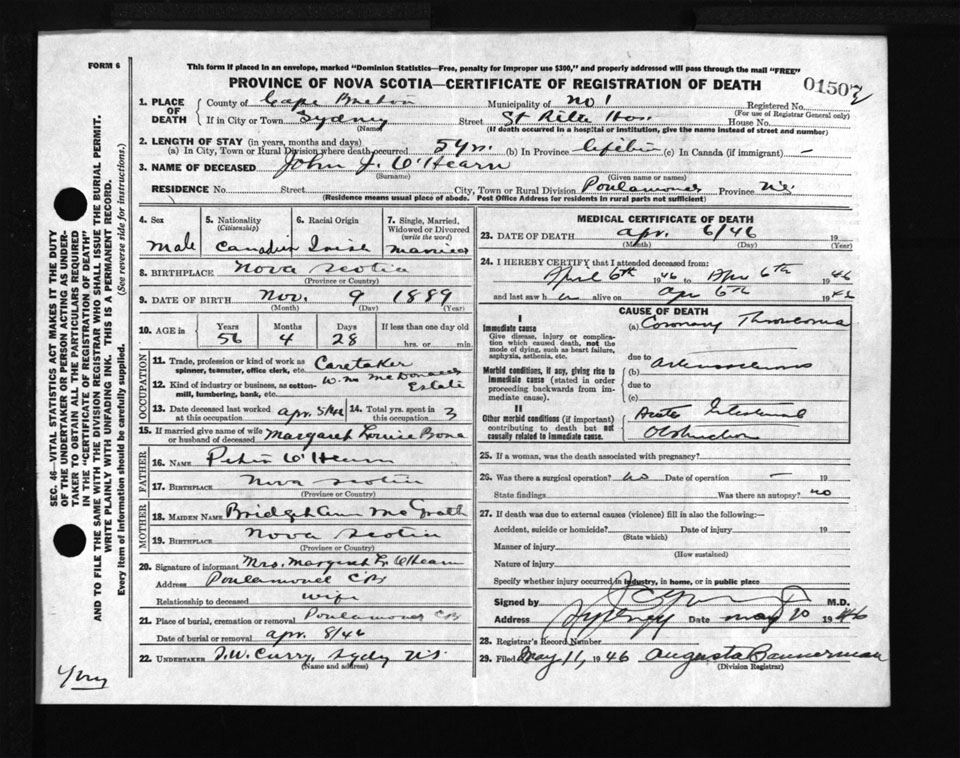 FORM 6
This form if placed in an envelope, marked "Dominion Statistics—Free, penalty for improper use $300," and properly addressed will pass through the mail "FREE"
PROVINCE OF NOVA SCOTIA—CERTIFICATE OF REGISTRATION OF DEATH
01507
1. PLACE OF DEATH
County of Cape Breton Municipality of No 1 Registered No.
(For use of Registrar General only)
If in City or Town Sydney Street St Rita Hos. House No.
(Name) (If death occurred in a hospital or institution, give the name instead of street and number)
2. LENGTH OF STAY (in years, months and days)
(a) In City, Town or Rural Division where death occurred (b) In Province lifetime (c) In Canada (if immigrant) —
3. NAME OF DECEASED John J. O'Hearn
(Surname) (Given name or names)
RESIDENCE No. Street City, Town or Rural Division Poulamond Province N.S.
(Residence means usual place of abode. Post Office Address for residents in rural parts not sufficient)
4. Sex
Male
5. Nationality
(Citizenship)
Canadian
6. Racial Origin
Irish
7. Single, Married, Widowed or Divorced
(write the word)
Married
8. BIRTHPLACE Nova Scotia
(Province or Country)
9. DATE OF BIRTH Nov. 9 1889
(Month) (Day) (Year)
10. AGE in Years Months Days If less than one day old
56 4 28 hrs. or min.
OCCUPATION
11. Trade, profession or kind of work as spinner, teamster, office clerk, etc. Caretaker
12. Kind of industry or business, as cotton-mill, lumbering, bank, etc. W. McDonald Estate
13. Date deceased last worked at this occupation Apr. 5/46 14. Total yrs. spent in this occupation 3
15. If married give name of wife or husband of deceased Margaret Louise Bona
FATHER
16. NAME Peter O'Hearn
17. BIRTHPLACE Nova Scotia
(Province or Country)
MOTHER
18. MAIDEN NAME Bridget Ann McGrath
19. BIRTHPLACE Nova Scotia
(Province or Country)
20. Signature of informant Mrs. Margaret L. O'Hearn
Address Poulamond C.B.
Relationship to deceased wife
21. Place of burial, cremation or removal Poulamond C.B.
Date of burial or removal Apr. 8/46
22. UNDERTAKER T.W. Curry, Sydney N.S.
(Name and address)
MEDICAL CERTIFICATE OF DEATH
23. DATE OF DEATH Apr. 6/46 19
(Month) (Day) (Year)
24. I HEREBY CERTIFY that I attended deceased from:
April 6th 1946 to Apr 6th 1946
and last saw h im alive on Apr 6th 1946
CAUSE OF DEATH
I
Immediate cause
Give disease, injury or complication which caused death, not the mode of dying, such as heart failure, asphyxia, asthenia, etc.
(a) Coronary Thrombosis
due to
Morbid conditions, if any, giving rise to immediate cause (stated in order proceeding backwards from immediate cause).
(b) Arteriosclerosis
due to
(c)
II
Other morbid conditions (if important) contributing to death but not causally related to immediate cause.
Acute Intestinal
Obstruction
25. If a woman, was the death associated with pregnancy?
26. Was there a surgical operation? No Date of operation — 19
State findings Was there an autopsy? no
27. If death was due to external causes (violence) fill in also the following:—
Accident, suicide or homicide? Date of injury 19
(State which)
Manner of injury
(How sustained)
Nature of injury
Specify whether injury occurred in industry, in home, or in public place
Signed by M.D.
Address Sydney Date May 10 1946
28. Registrar's Record Number
29. Filed May 11, 1946 Augusta Bannerman
(Division Registrar)
SEC. 46—VITAL STATISTICS ACT MAKES IT THE DUTY
OF THE UNDERTAKER OR PERSON ACTING AS UNDER-
TAKER TO OBTAIN ALL THE PARTICULARS REQUIRED
IN THE "CERTIFICATE OF REGISTRATION OF DEATH"
AND TO FILE THE SAME WITH THE DIVISION REGISTRAR WHO SHALL ISSUE THE BURIAL PERMIT.
WRITE PLAINLY WITH UNFADING INK. THIS IS A PERMANENT RECORD.
Every item of information should be carefully supplied. (See reverse side for instructions.)